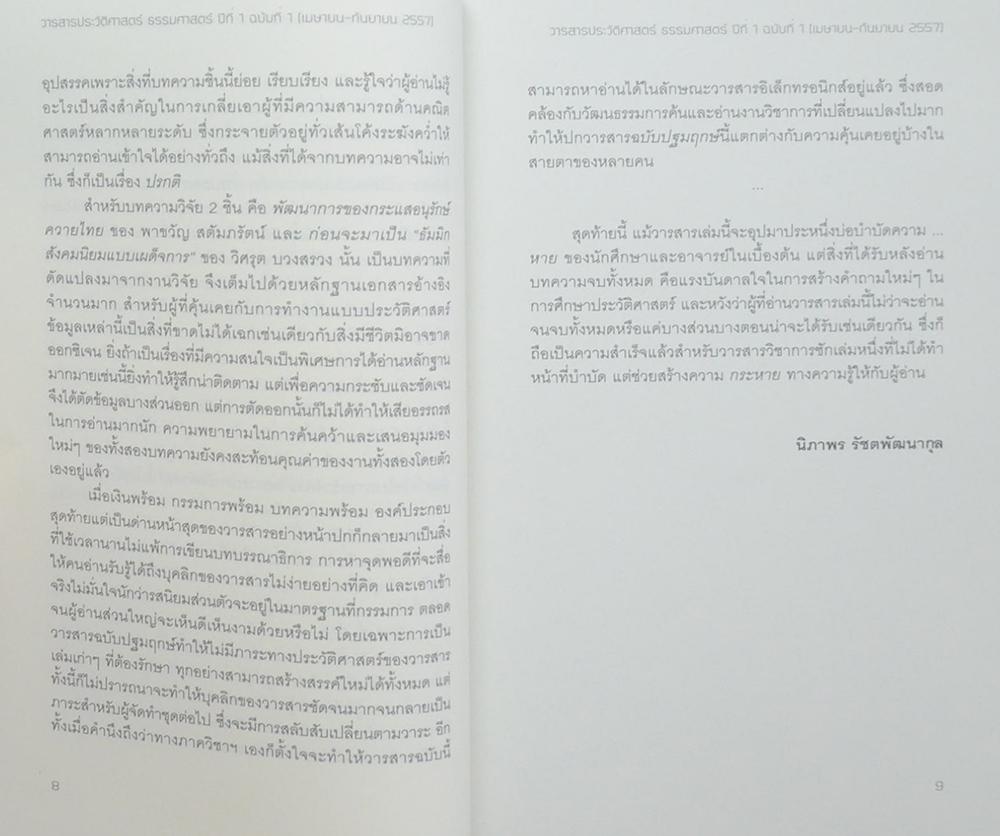 วารสารประวัติศาสตร์ ธรรมศาสตร์ ปีที่ 1 ฉบับที่ 1 (เมษายน-กันยายน 2557)
อุปสรรคเพราะสิ่งที่บทความชิ้นนี้ย่อย เรียบเรียง และรู้ใจว่าผู้อ่านไม่รู้
อะไรเป็นสิ่งสำคัญในการเกลี่ยเอาผู้ที่มีความสามารถด้านคณิต
ศาสตร์หลากหลายระดับ ซึ่งกระจายตัวอยู่ทั่วเส้นโค้งระฆังคว่ำให้
สามารถอ่านเข้าใจได้อย่างทั่วถึง แม้สิ่งที่ได้จากบทความอาจไม่เท่า
กัน ซึ่งก็เป็นเรื่อง ปรกติ
สำหรับบทความวิจัย 2 ชิ้น คือ พัฒนาการของกระแสอนุรักษ์
ควายไทย ของ พาขวัญ สตัมภรัตน์ และ ก่อนจะมาเป็น "ธัมมิก
สังคมนิยมแบบเผด็จการ" ของ วิศรุต บวงสรวง นั้น เป็นบทความที่
ดัดแปลงมาจากงานวิจัย จึงเต็มไปด้วยหลักฐานเอกสารอ้างอิง
จำนวนมาก สำหรับผู้ที่คุ้นเคยกับการทำงานแบบประวัติศาสตร์
ข้อมูลเหล่านี้เป็นสิ่งที่ขาดไม่ได้เฉกเช่นเดียวกับสิ่งมีชีวิตมิอาจขาด
ออกซิเจน ยิ่งถ้าเป็นเรื่องที่มีความสนใจเป็นพิเศษการได้อ่านหลักฐาน
มากมายเช่นนี้ยิ่งทำให้รู้สึกน่าติดตาม แต่เพื่อความกระชับและชัดเจน
จึงได้ตัดข้อมูลบางส่วนออก แต่การตัดออกนั้นก็ไม่ได้ทำให้เสียอรรถรส
ในการอ่านมากนัก ความพยายามในการค้นคว้าและเสนอมุมมอง
ใหม่ๆ ของทั้งสองบทความยังคงสะท้อนคุณค่าของงานทั้งสองโดยตัว
เองอยู่แล้ว
เมื่อเงินพร้อม กรรมการพร้อม บทความพร้อม องค์ประกอบ
สุดท้ายแต่เป็นด่านหน้าสุดของวารสารอย่างหน้าปกก็กลายมาเป็นสิ่ง
ที่ใช้เวลานานไม่แพ้การเขียนบทบรรณาธิการ การหาจุดพอดีที่จะสื่อ
ให้คนอ่านรับรู้ได้ถึงบุคลิกของวารสารไม่ง่ายอย่างที่คิด และเอาเข้า
จริงไม่มั่นใจนักว่ารสนิยมส่วนตัวจะอยู่ในมาตรฐานที่กรรมการ ตลอด
จนผู้อ่านส่วนใหญ่จะเห็นดีเห็นงามด้วยหรือไม่ โดยเฉพาะการเป็น
วารสารฉบับปฐมฤกษ์ทำให้ไม่มีภาระทางประวัติศาสตร์ของวารสาร
เล่มเก่าๆ ที่ต้องรักษา ทุกอย่างสามารถสร้างสรรค์ใหม่ได้ทั้งหมด แต่
ทั้งนี้ก็ไม่ปรารถนาจะทำให้บุคลิกของวารสารชัดจนมากจนกลายเป็น
ภาระสำหรับผู้จัดทำชุดต่อไป ซึ่งจะมีการสลับสับเปลี่ยนตามวาระ อีก
ทั้งเมื่อคำนึงถึงว่าทางภาควิชาฯ เองก็ตั้งใจจะทำให้วารสารฉบับนี้
8
วารสารประวัติศาสตร์ ธรรมศาสตร์ ปีที่ 1 ฉบับที่ 1 (เมษายน-กันยายน 2557)
สามารถหาอ่านได้ในลักษณะวารสารอิเล็กทรอนิกส์อยู่แล้ว ซึ่งสอด
คล้องกับวัฒนธรรมการค้นและอ่านงานวิชาการที่เปลี่ยนแปลงไปมาก
ทำให้ปกวารสารฉบับปฐมฤกษ์นี้แตกต่างกับความคุ้นเคยอยู่บ้างใน
สายตาของหลายคน
...
สุดท้ายนี้ แม้วารสารเล่มนี้จะอุปมาประหนึ่งบ่อบำบัดความ ...
หาย ของนักศึกษาและอาจารย์ในเบื้องต้น แต่สิ่งที่ได้รับหลังอ่าน
บทความจบทั้งหมด คือแรงบันดาลใจในการสร้างคำถามใหม่ๆ ใน
การศึกษาประวัติศาสตร์ และหวังว่าผู้ที่อ่านวารสารเล่มนี้ไม่ว่าจะอ่าน
จนจบทั้งหมดหรือแค่บางส่วนบางตอนน่าจะได้รับเช่นเดียวกัน ซึ่งก็
ถือเป็นความสำเร็จแล้วสำหรับวารสารวิชาการซักเล่มหนึ่งที่ไม่ได้ทำ
หน้าที่บำบัด แต่ช่วยสร้างความ กระหาย ทางความรู้ให้กับผู้อ่าน
นิภาพร รัชตพัฒนากุล
9